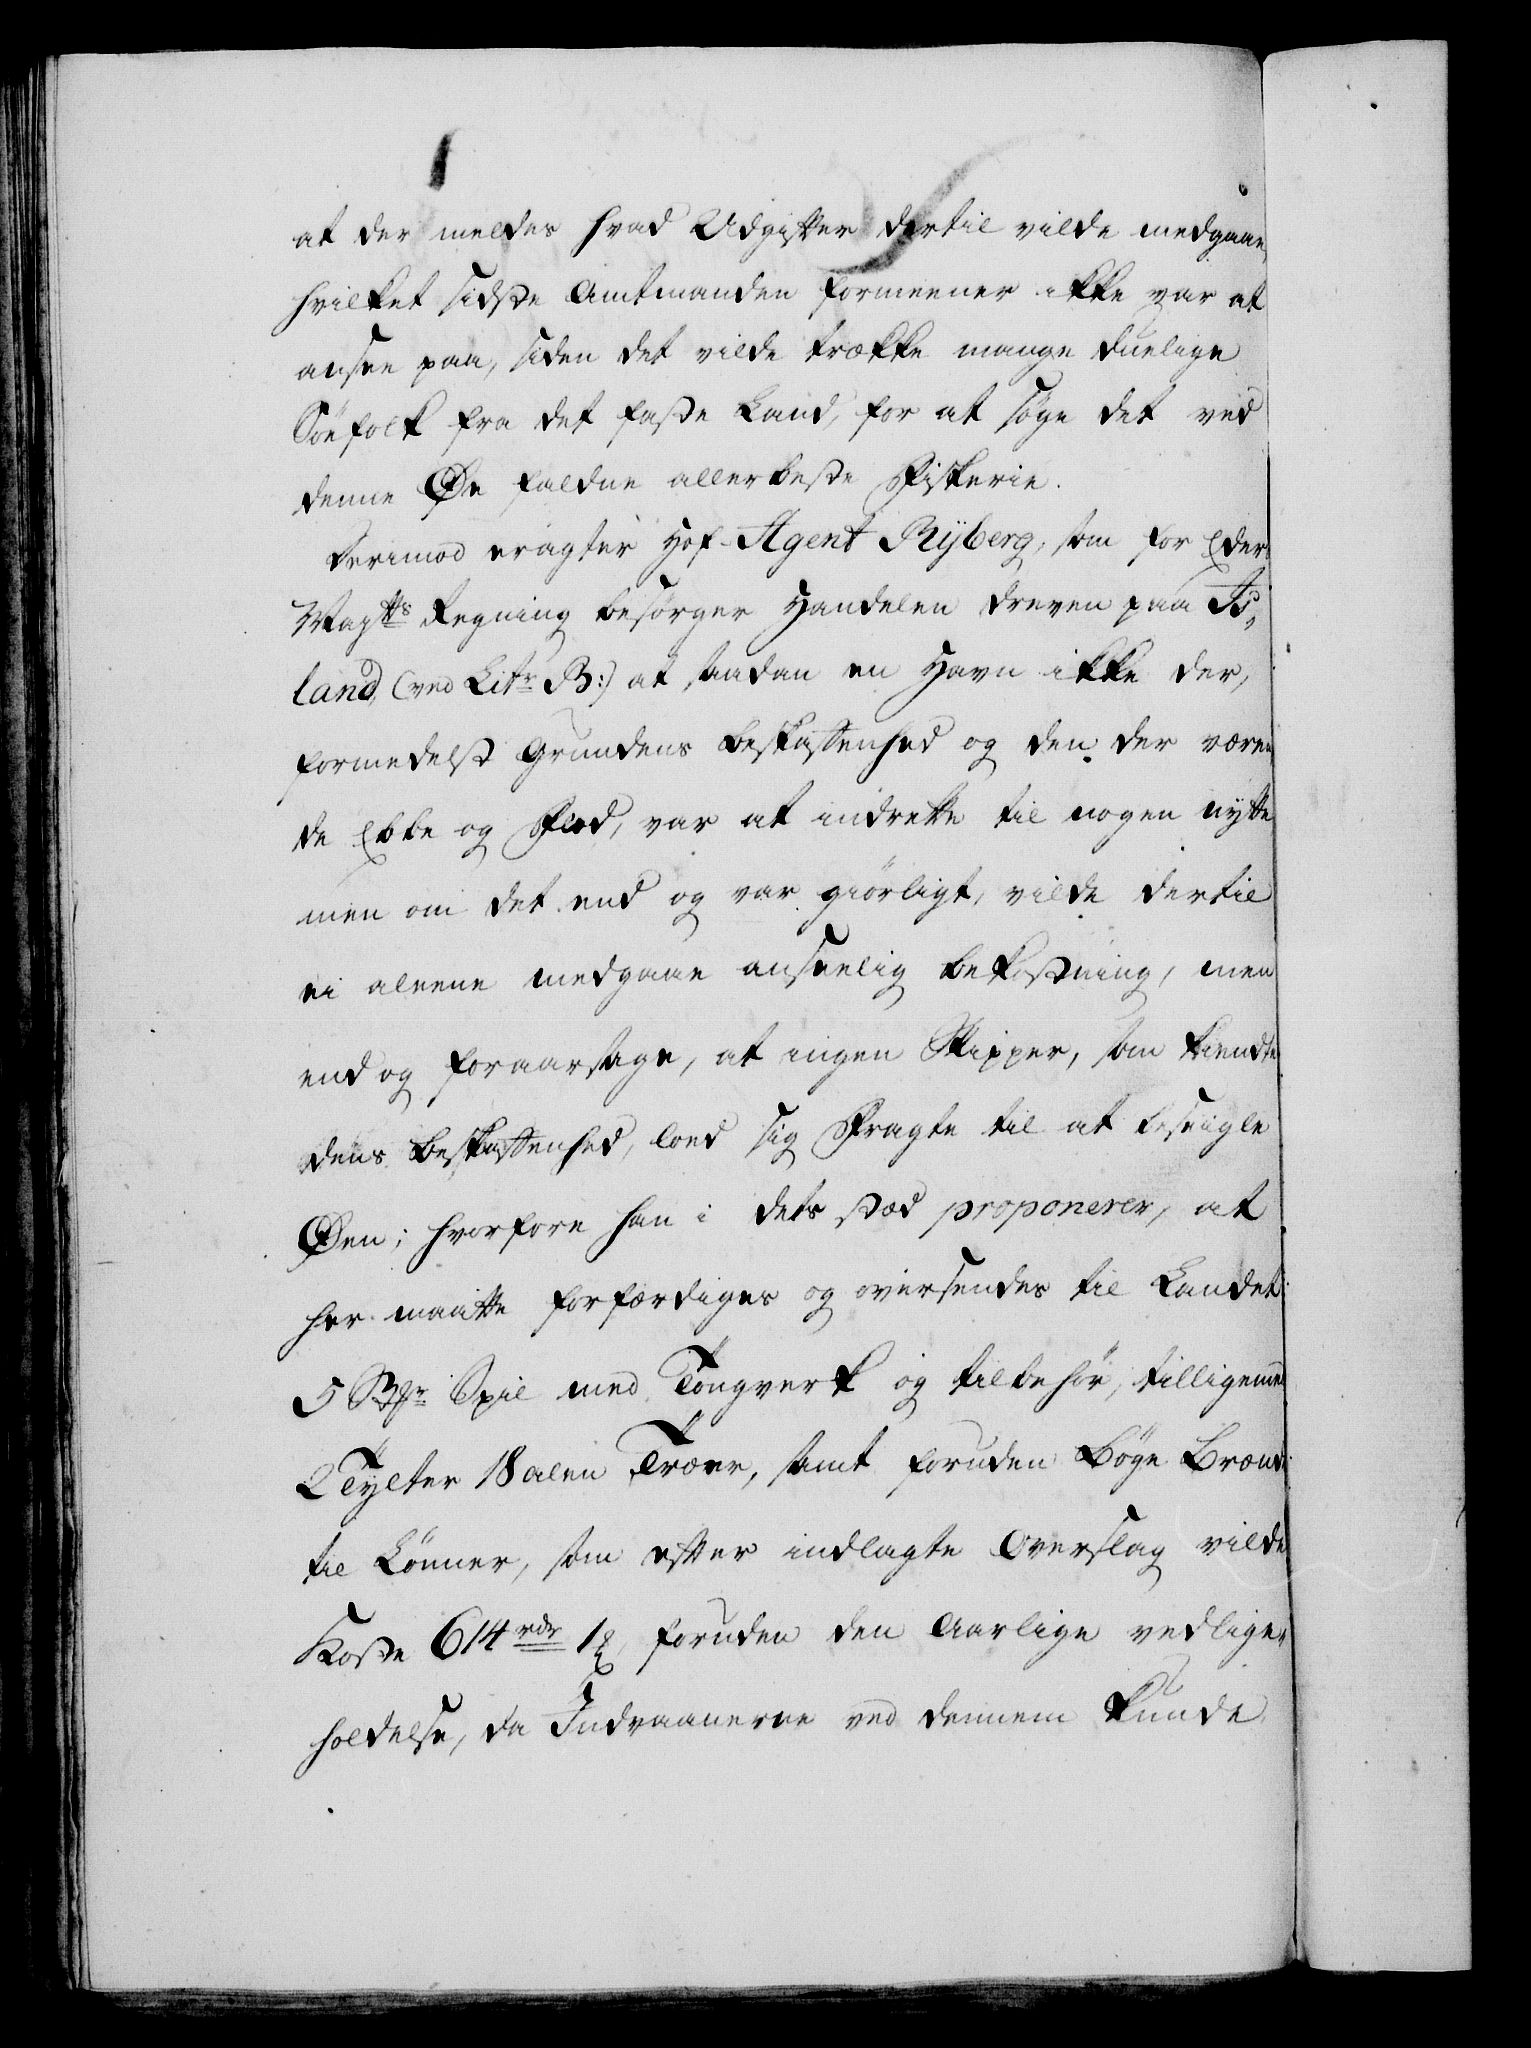 at der meldes hvad Udgifter dertil vilde medgaae,
hvilket sidste Amtmanden formeener ikke var at
ansee paa, siden det vilde trække mange duelige
Söefolk fra det faste Land, for at søge det ved
denne Øe faldne allerbeste Fiskerie.
Derimod eragter Hof-Agent Rÿberg, som for Eders
Mayts Regning besörger Handelen dreven paa Is„
land, (ved Litr B:) at saadan en Havn ikke der,
formedelst Grundens Beskaffenhed og den der væren
de Ebbe og Flod, var at indrette til nogen nÿtte
men om det end og var giörligt, vilde dertil
ei aleene medgaae anseelig Bekostning, men
end og foraarsage, at ingen Skipper, som kiendte
dens Beskaffenhed, loed sig Fragte til at beseigle
Øen; hvorfore han i dets stæd proponerer, at
her maatte forfærdiges og oversendes til Landet
5 Spil med Tougverk og tilbehör, tilligemed
2 Tylter 18 alen Træer, samt foruden Böge Brænde
til Lönner, som efter indlagte Overslag vilde
Koste 614 rdr 1 ß, foruden den Aarlige vedlige„
holdelse, da Indvaanerne ved dennem kunde